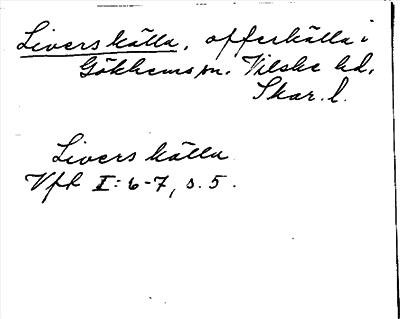 Liverskälla, offerkälla i
Gökhems sn. Vilske hd.
Skar. l.
Livers källa
Vfk I: 6-7, s. 5.